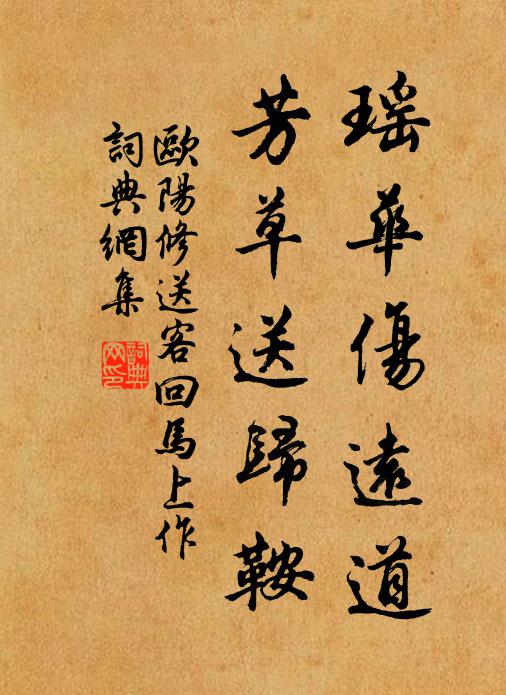 瑶華傷遠道
芳草送歸鞍
歐陽修送客回馬上作
詞典網集
詞典網印